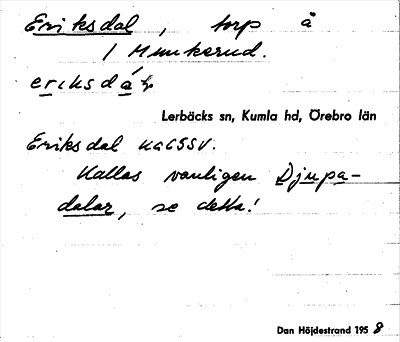 Eriksdal, torp å
1 Munkerud.
eriksdá
Lerbäcks sn, Kumla hd, Örebro län
Eriksdal
Kallas vanligen Djupa-
dalar, se detta!
Dan Höjdestrand 1958